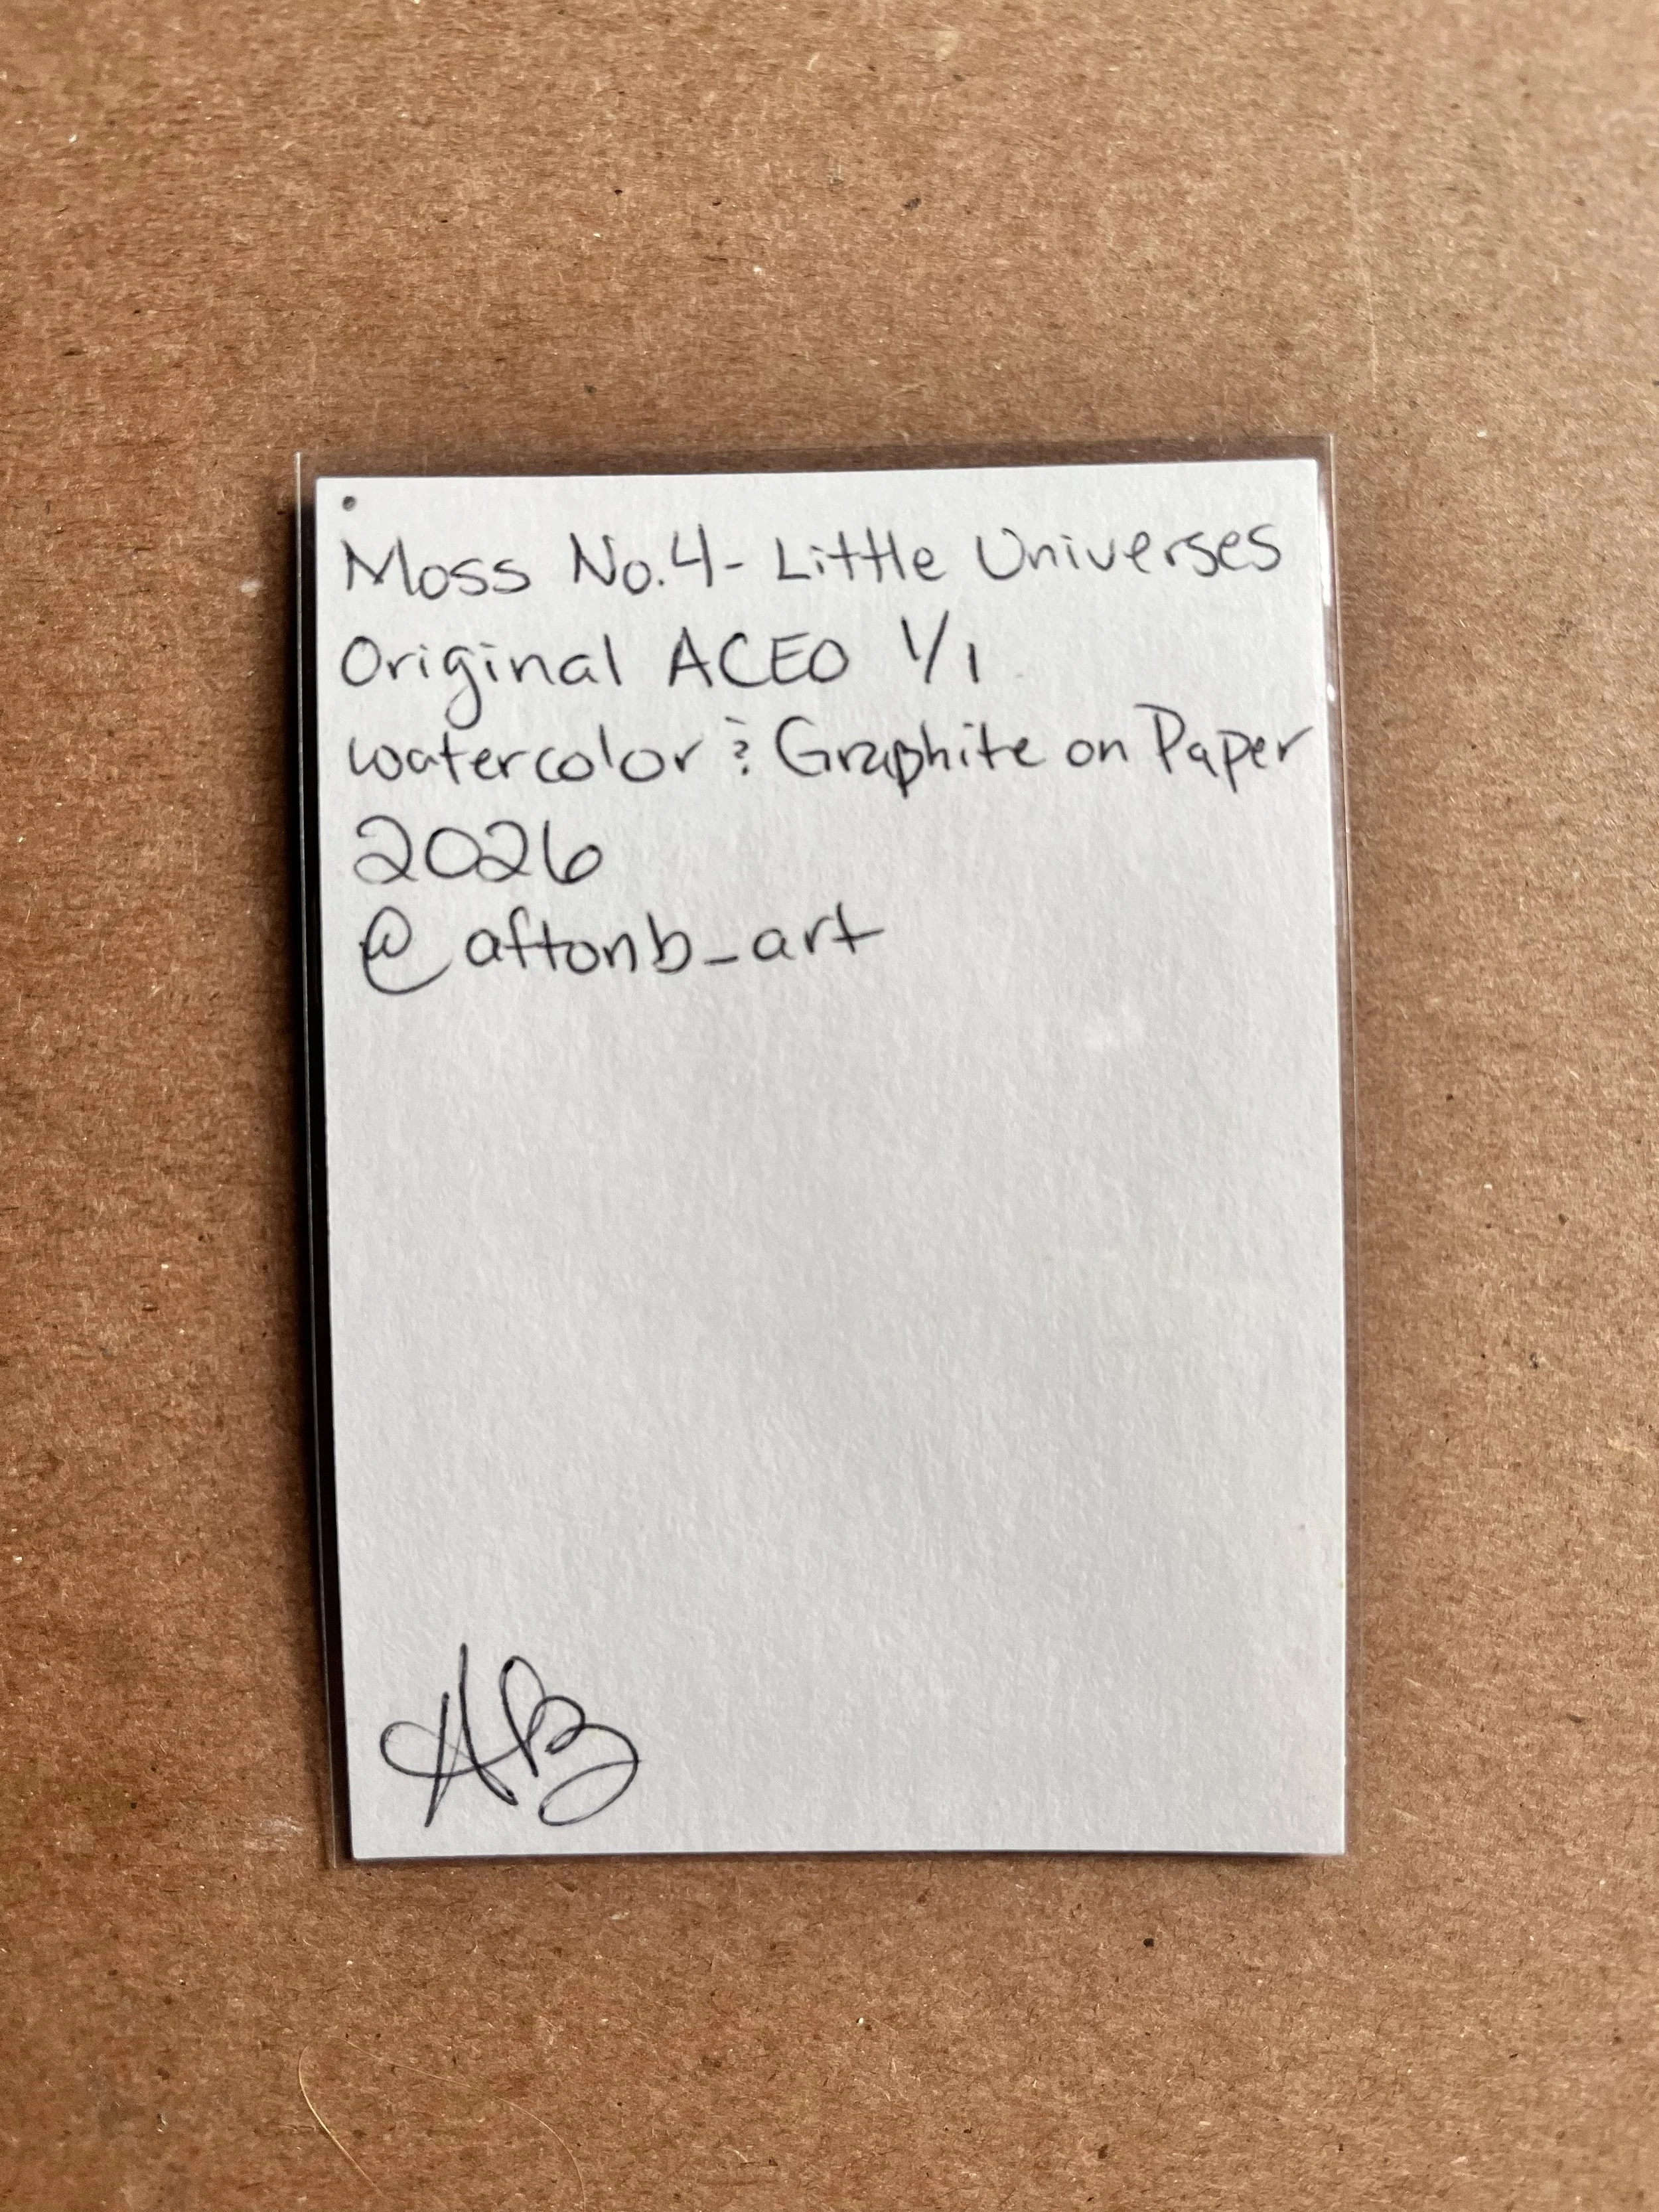 Moss No.4 - Little Universes
Original ACEO 1/1
watercolor & Graphite on Paper
2026
@aftonb_art
AB